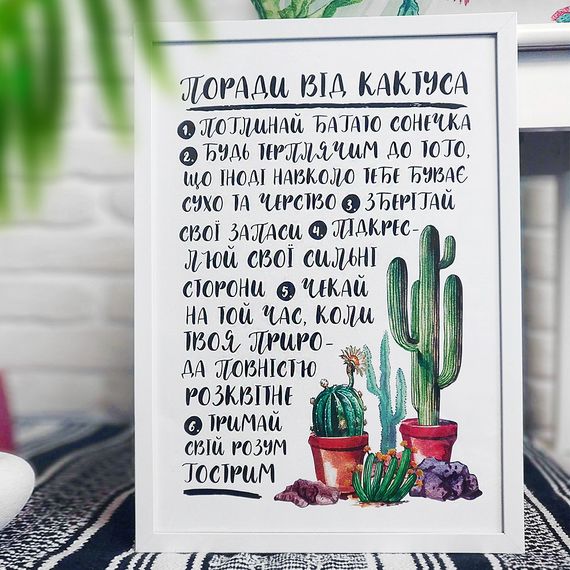 ПОРАДИ ВІД КАКТУСА
1. ПОГЛИНАЙ БАГАТО СОНЕЧКА
2. БУДЬ ТЕРПЛЯЧИМ ДО ТОГО,
ЩО ІНОДІ НАВКОЛО ТЕБЕ БУВАЄ
СУХО ТА ЧЕРСТВО 3. ЗБЕРІГАЙ
СВОЇ ЗАПАСИ 4. ПІДКРЕС-
ЛЮЙ СВОЇ СИЛЬНІ
СТОРОНИ 5. ЧЕКАЙ
НА ТОЙ ЧАС, КОЛИ
ТВОЯ ПРИРО-
ДА ПОВНІСТЮ
РОЗКВІТНЕ
6. ТРИМАЙ
СВІЙ РОЗУМ
ГОСТРИМ